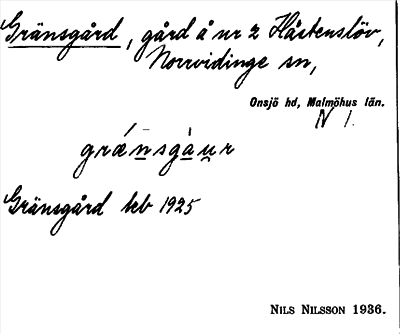 Gränsgård, gård å nr 2 Håstenslöv,
Norrvidinge sn,
Onsjö hd, Malmöhus län.
N 1.
grǽn̲sgàu̯r
Gränsgård beb 1925
NILS NILSSON 1936.